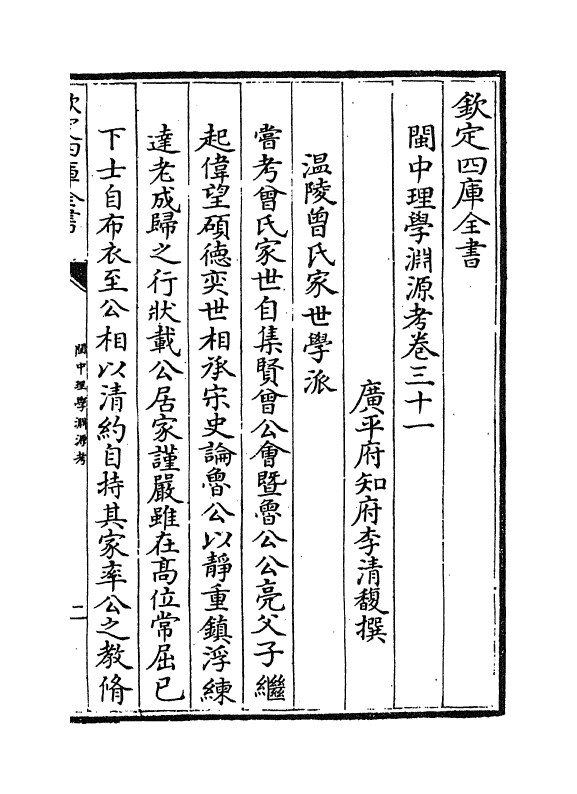 欽定四庫全書
閩中理學淵源考卷三十一
廣平府知府李清馥撰
温陵曾氏家世學派
嘗考曾氏家世自集賢曾公會暨魯公公亮父子繼
起偉望碩德奕世相承宋史論魯公以靜重鎮浮練
達老成歸之行狀載公居家謹嚴雖在髙位常屈已
下士自布衣至公相以清約自持其家率公之教脩
欽定四庫全書
閩中理學淵源考
二